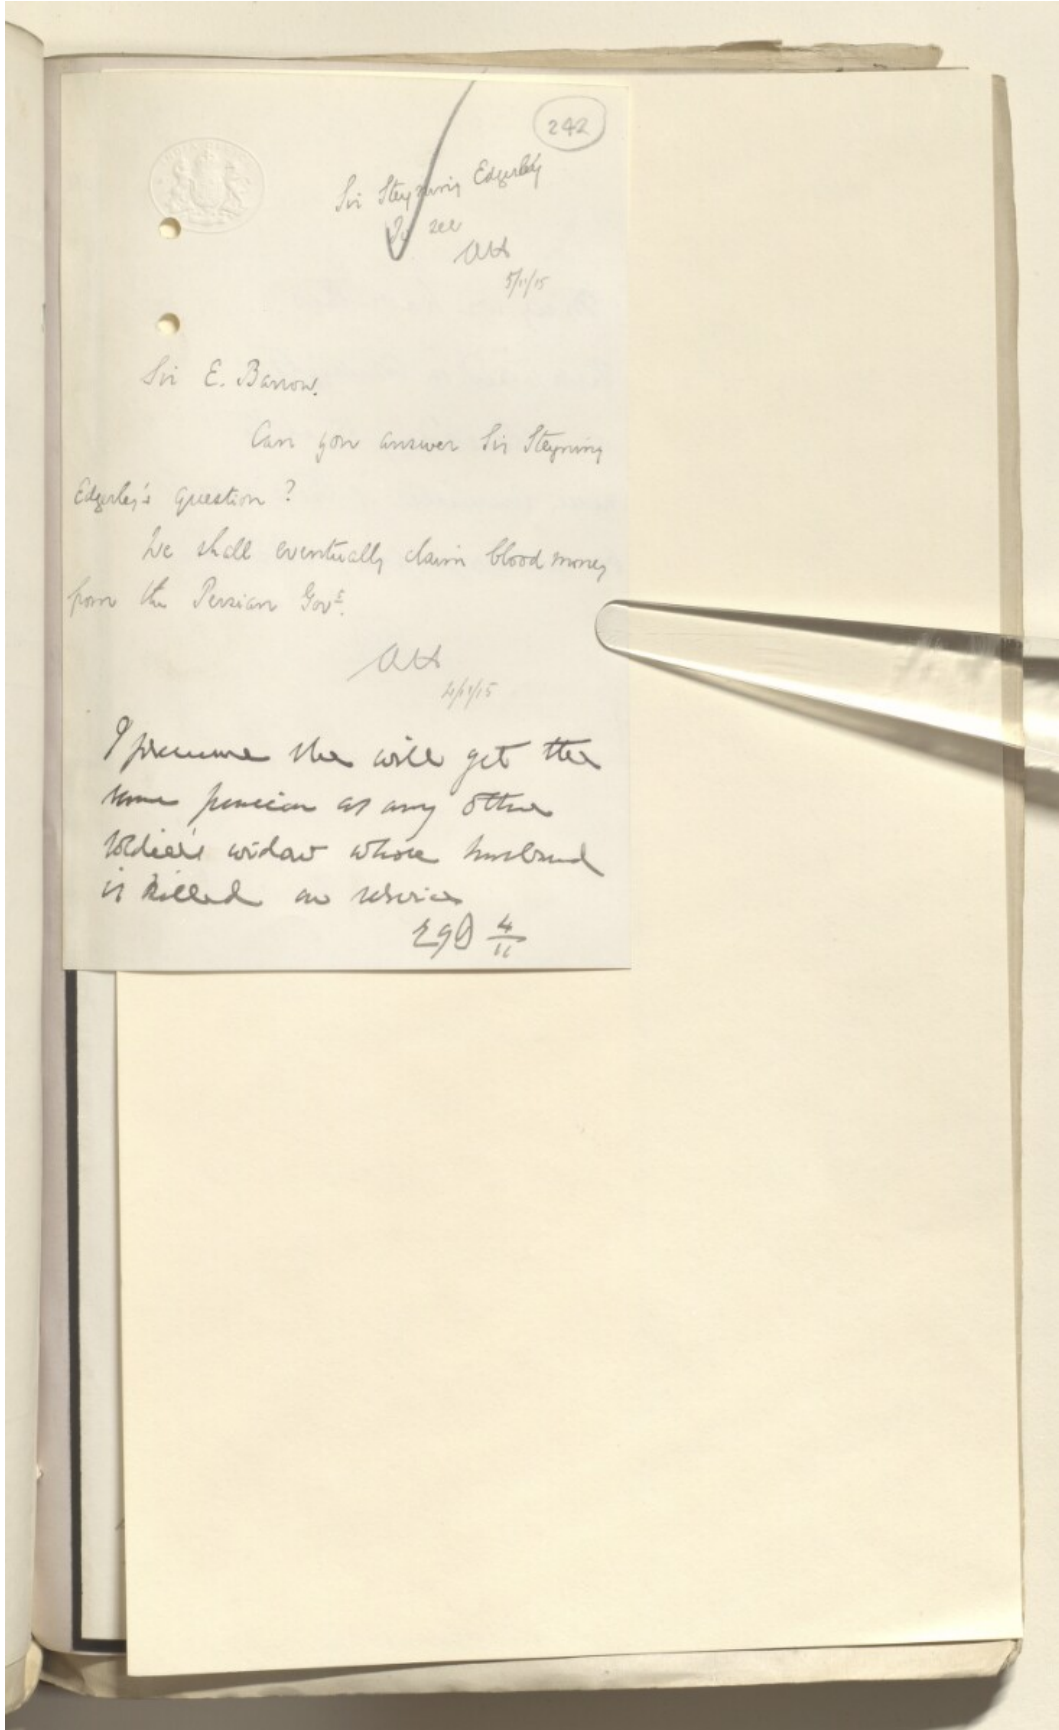 242
Sir Steyning Edgerley
To see
AH
5/11/15
Sir E. Barrow.
Can you answer Sir Steyning
Edgerley's question?
We shall eventually claim blood money
from the Persian Govt.
AH
4/11/15
I presume she will get the
same pension as any other
soldier's widow whose husband
is killed on service
EGB 4/11